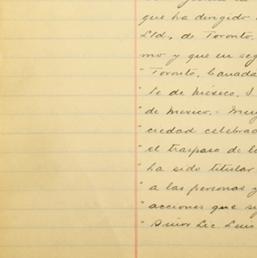 que ha dirigido
Ltd., de Toronto.
mo y que en seg
Toronto, Canada
" te de México, S.
" de Mexico.- Muy
" ciedad celebrad
" el traspaso de l
" ha sido titular
" a las personas y
" acciones que s
" Señor Lic. Luis